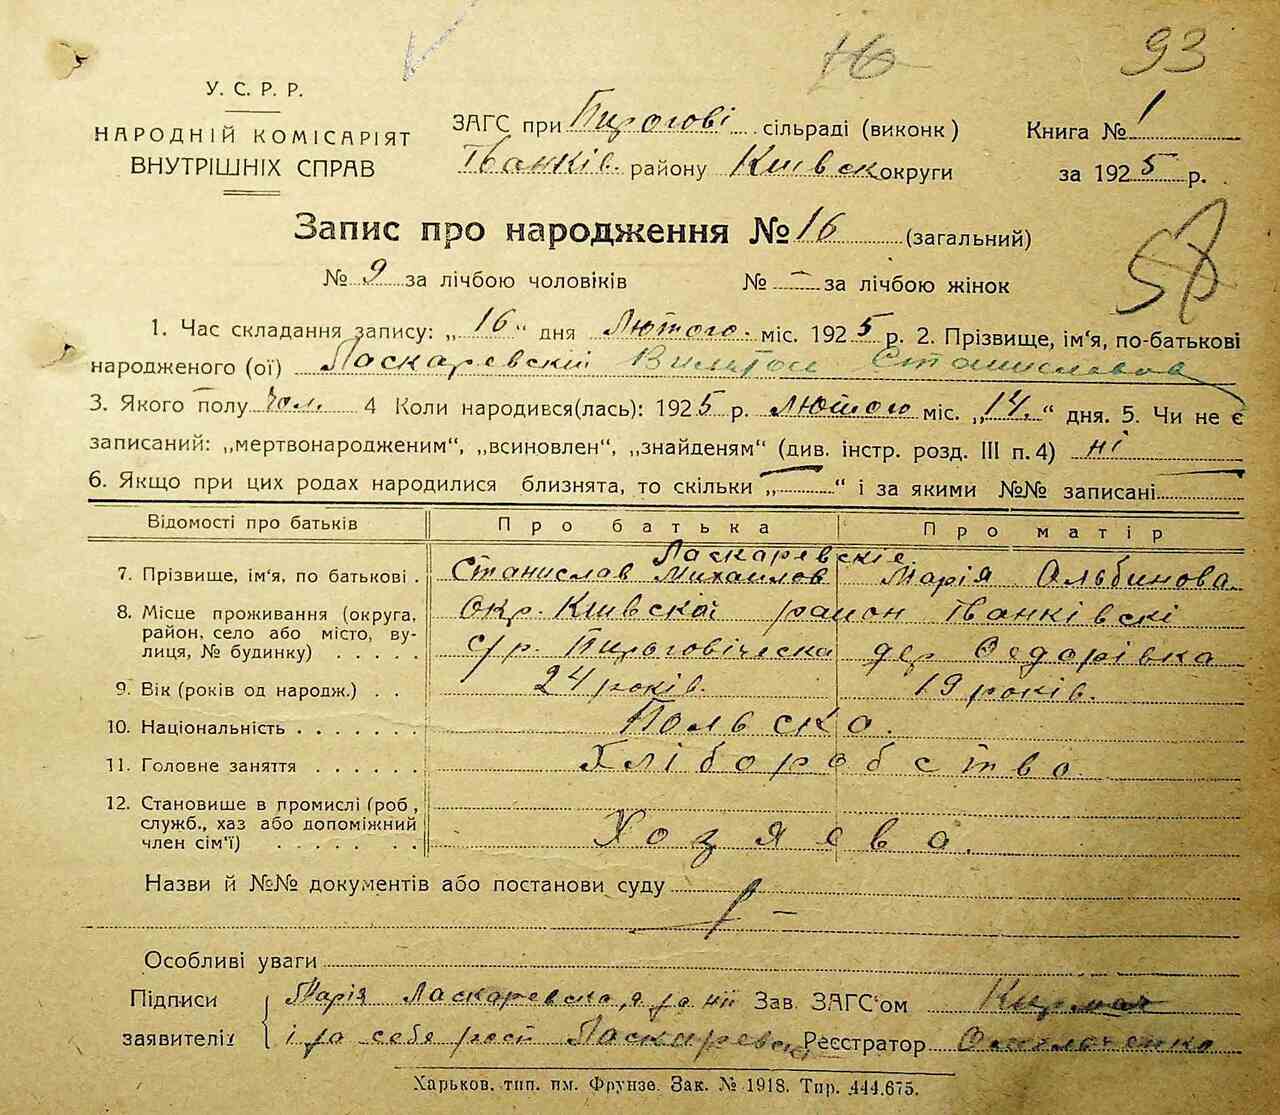 93
16
У. С. Р. Р.
НАРОДНІЙ КОМІСАРІЯТ
ВНУТРІШНІХ СПРАВ
ЗАГС при Пирогові сільраді (виконк)
Іванків. району Київск округи
Книга № 1
за 1925 р.
Запис про народження № 16 (загальний)
№ 9 за лічбою чоловіків № – за лічбою жінок
1. Час складання запису: „16“ дня Лютого міс. 1925 р. 2. Прізвище, ім'я, по-батькові
народженого (ої) Ласкаревскій Станиславов
3. Якого полу Чол. 4 Коли народився(лась): 1925 р. лютого міс. „14.“ дня. 5. Чи не є
записаний: „мертвонародженим“, „всиновлен“, „знайденям“ (див. інстр. розд. III п. 4) ні
6. Якщо при цих родах народилися близнята, то скільки „ “ і за якими №№ записані
Відомості про батьків Про батька Про матір
Ласкаревскіе
7. Прізвище, ім'я, по батькові . Станислав Михаилов Марія Альбинова
8. Місце проживання (округа, район, село або місто, вулиця, № будинку) Окр. Київскаі район Іванківскі
с/р. Пироговіческа дер Федорівка
9. Вік (років од народж.) . . 24 років. 19 років.
10. Національність Польска.
11. Головне заняття Хліборобство
12. Становише в промислі (роб, служб., хаз або допоміжний член сім'ї) Хозяева.
Назви й №№ документів або постанови суду
Особливі уваги
Підписи заявителів Марія Ласкаревска, я за нії Зав. ЗАГС'ом
і за себе росп Ласкаревскі Реєстратор
Харьков. тип. им. Фрунзе. Зак. № 1918. Тир. 444.675.